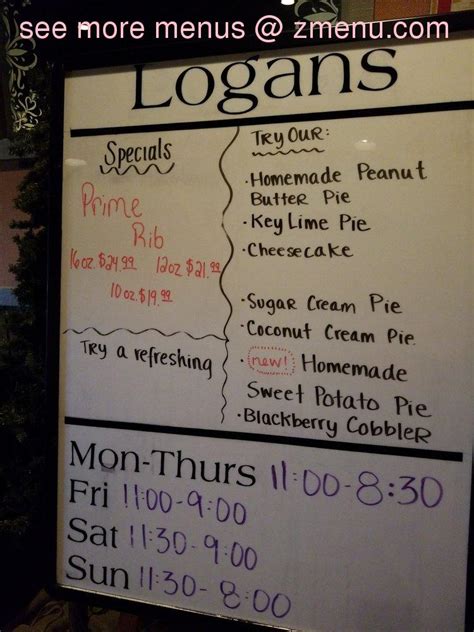 see more menus @ zmenu.com
Logans
Specials
Prime
Rib
16oz. $24.99 12oz $21.99
10oz. $19.99
Try a refreshing
TRY OUR:
·Homemade Peanut
Butter Pie
·Key Lime Pie
·Cheesecake
·Sugar Cream Pie
·Coconut Cream Pie
· new! Homemade
Sweet Potato Pie
·Blackberry Cobbler
Mon-Thurs 11:00-8:30
Fri 11:00-9:00
Sat 11:30-9:00
Sun 11:30-8:00